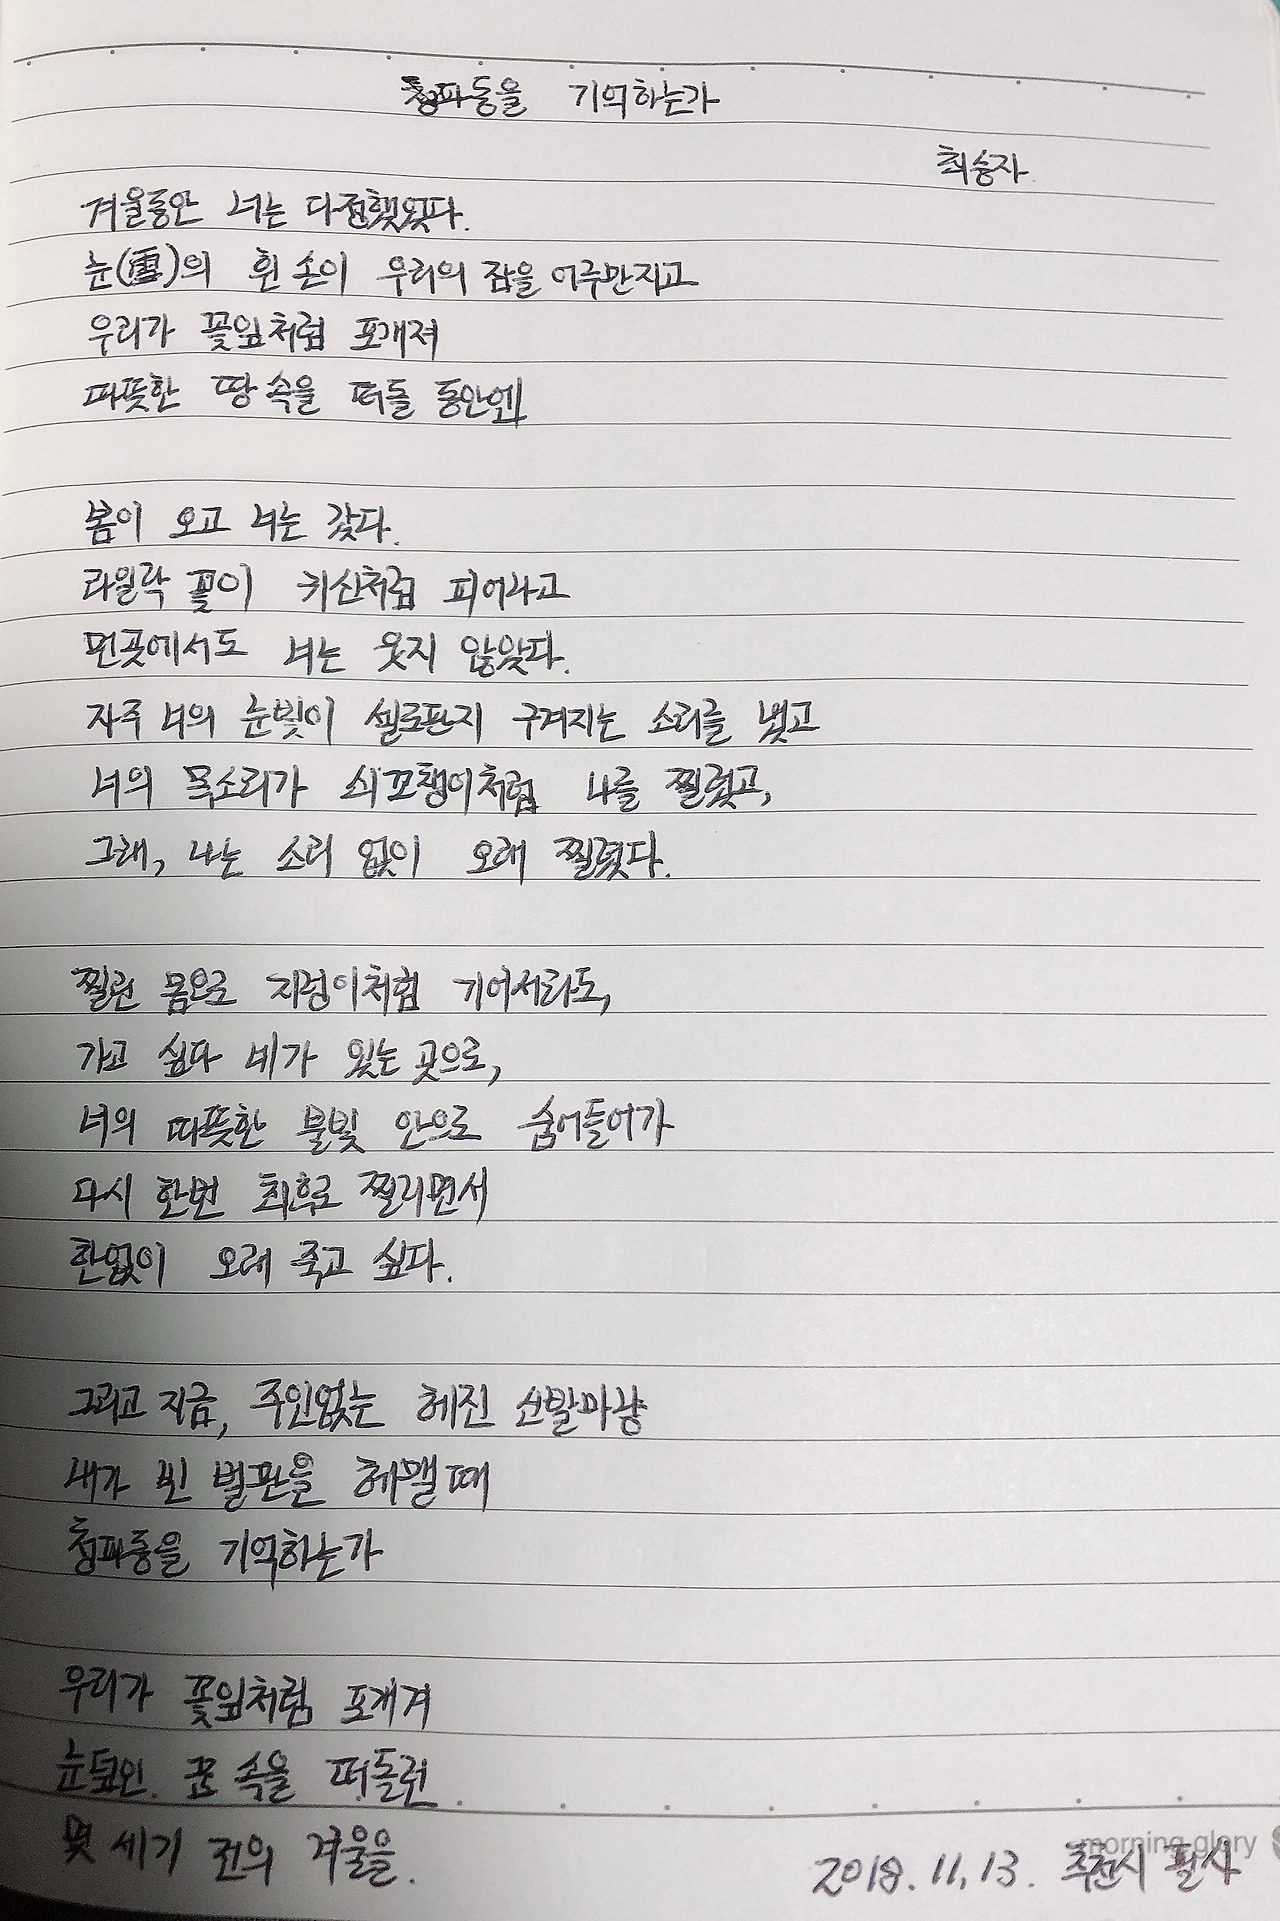 청파동을 기억하는가
최승자
겨울동안 너는 다정했었다.
눈(雪)의 흰 손이 우리의 잠을 어루만지고
우리가 꽃잎처럼 포개져
따뜻한 땅 속을 떠돌 동안엔
봄이 오고 너는 갔다.
라일락 꽃이 귀신처럼 피어나고
먼곳에서도 너는 웃지 않았다.
자주 너의 눈빛이 셀로판지 구겨지는 소리를 냈고
너의 목소리가 쇠꼬챙이처럼 나를 찔렀고,
그래, 나는 소리 없이 오래 찔렸다.
찔린 몸으로 지렁이처럼 기어서라도,
가고 싶다 네가 있는 곳으로,
너의 따뜻한 불빛 안으로 숨어들어가
다시 한번 최후로 찔리면서
한없이 오래 죽고 싶다.
그리고 지금, 주인없는 헤진 신발마냥
내가 빈 벌판을 헤맬 때
청파동을 기억하는가
우리가 꽃잎처럼 포개져
눈덮인 꿈 속을 떠돌던
몇 세기 전의 겨울을.
2018.11.13. 추천시 필사
morning glory